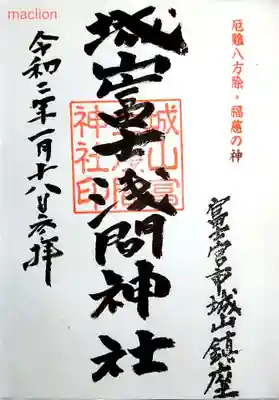 maclion
厄難八方除・福徳の神
富士宮市城山鎮座
城山富士浅間神社
令和三年一月十八日参拝
城山冨
神社印